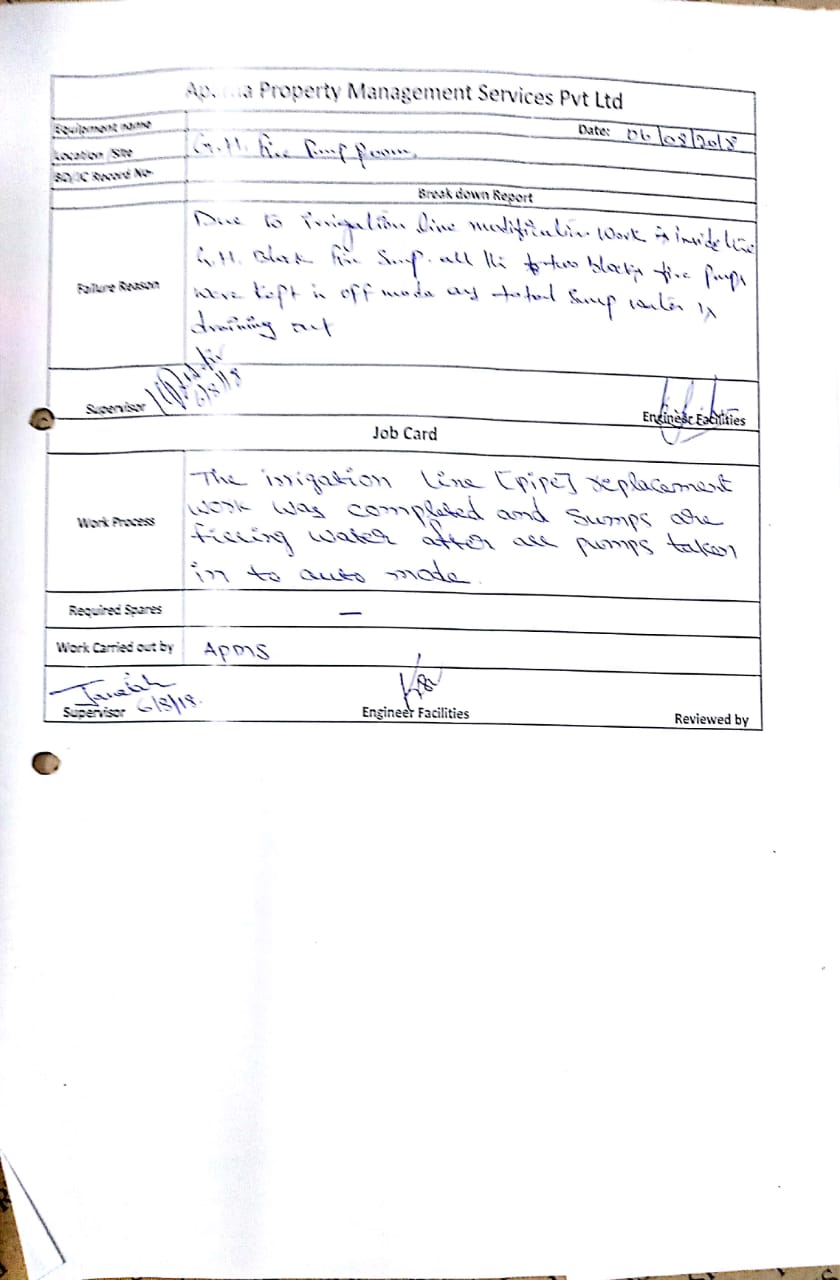 Property Management Services Pvt Ltd
Equipment name
Date: 06/08/2018
Location /Site G.H. fire Pump Room,
BD/JC Record No-
Break down Report
Failure Reason
Due to irrigation line modification work is inside line
G.H. Block fire Sump. all the two blocks fire pumps
were kept in off mode as total Sump water is
draining out
Supervisor 6/8/18
Engineer Facilities
Job Card
Work Process
The irrigation Line [pipe] replacement
work was completed and sumps are
filling water after all pumps taken
in to auto mode.
Required Spares —
Work Carried out by APMS
Supervisor 6/8/18.
Engineer Facilities
Reviewed by